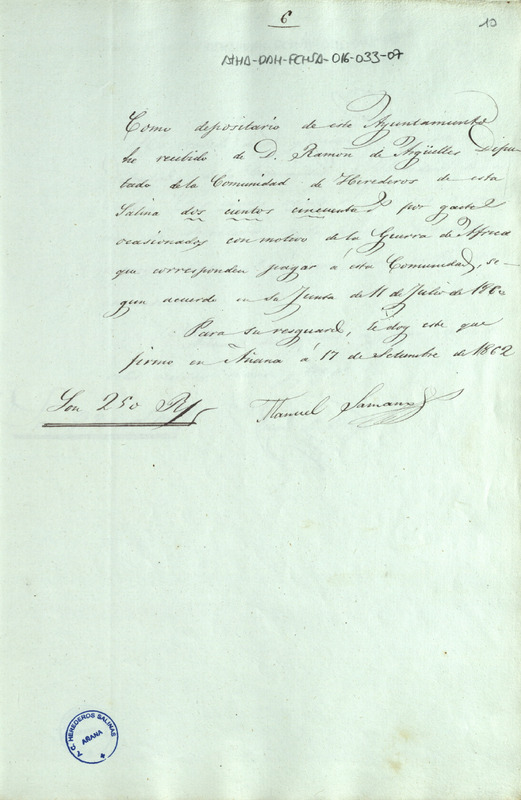 6
10
ATHA-DAH-FCHSA-016-033-07
Como depositario de este Ayuntamiento
he recibido de D. Ramon de Argüelles Dipu
tado de la Comunidad de Herederos de esta
Salina dos cientos cincuenta por gastos
ocasionados con motivo de la Guerra de Africa
que corresponden pagar á esta Comunidad, se-
gun acuerdo en su Junta de 11 de Julio de
Para su resguardo, le doy este que
firmo en Añana á 17 de Setembre de 1862
Son 250 Rs
Manuel Samano
C. HEREDEROS SALINAS
AÑANA